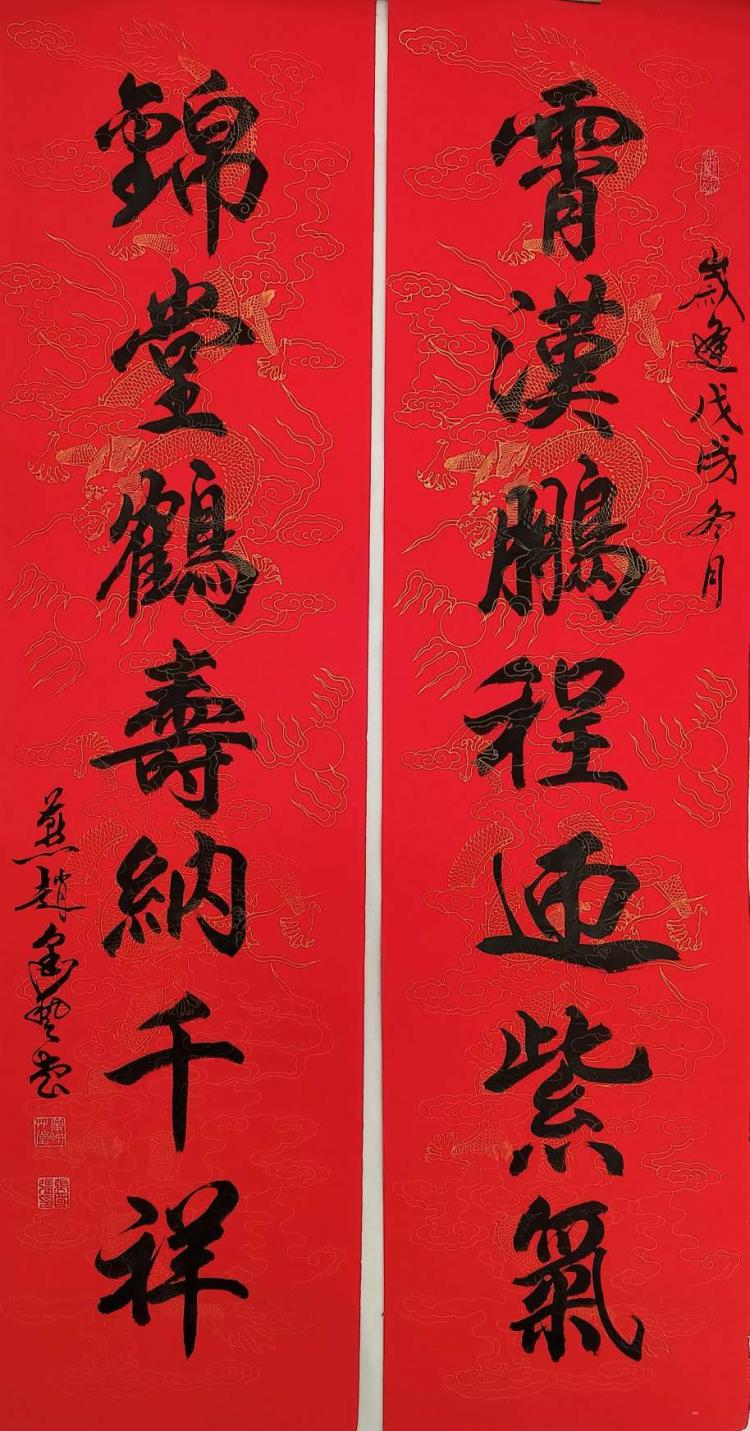 歲逢戊戌冬月
霄漢鵬程迎紫氣
錦堂鶴壽納千祥
燕趙